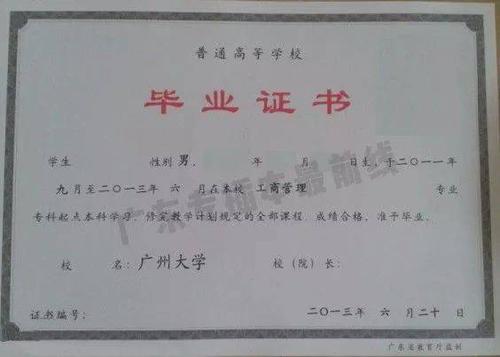 普通高等学校
毕业证书
学生 性别 男， 年 月 日生，于二〇一一年
九月至二〇一三年 六 月在本校 工商管理 专业
专科起点本科学习，修完教学计划规定的全部课程，成绩合格，准予毕业。
校 名：广州大学 校（院）长：
证书编号： 二〇一三年 六 月二十 日
广东省教育厅监制
广东专插本最前线